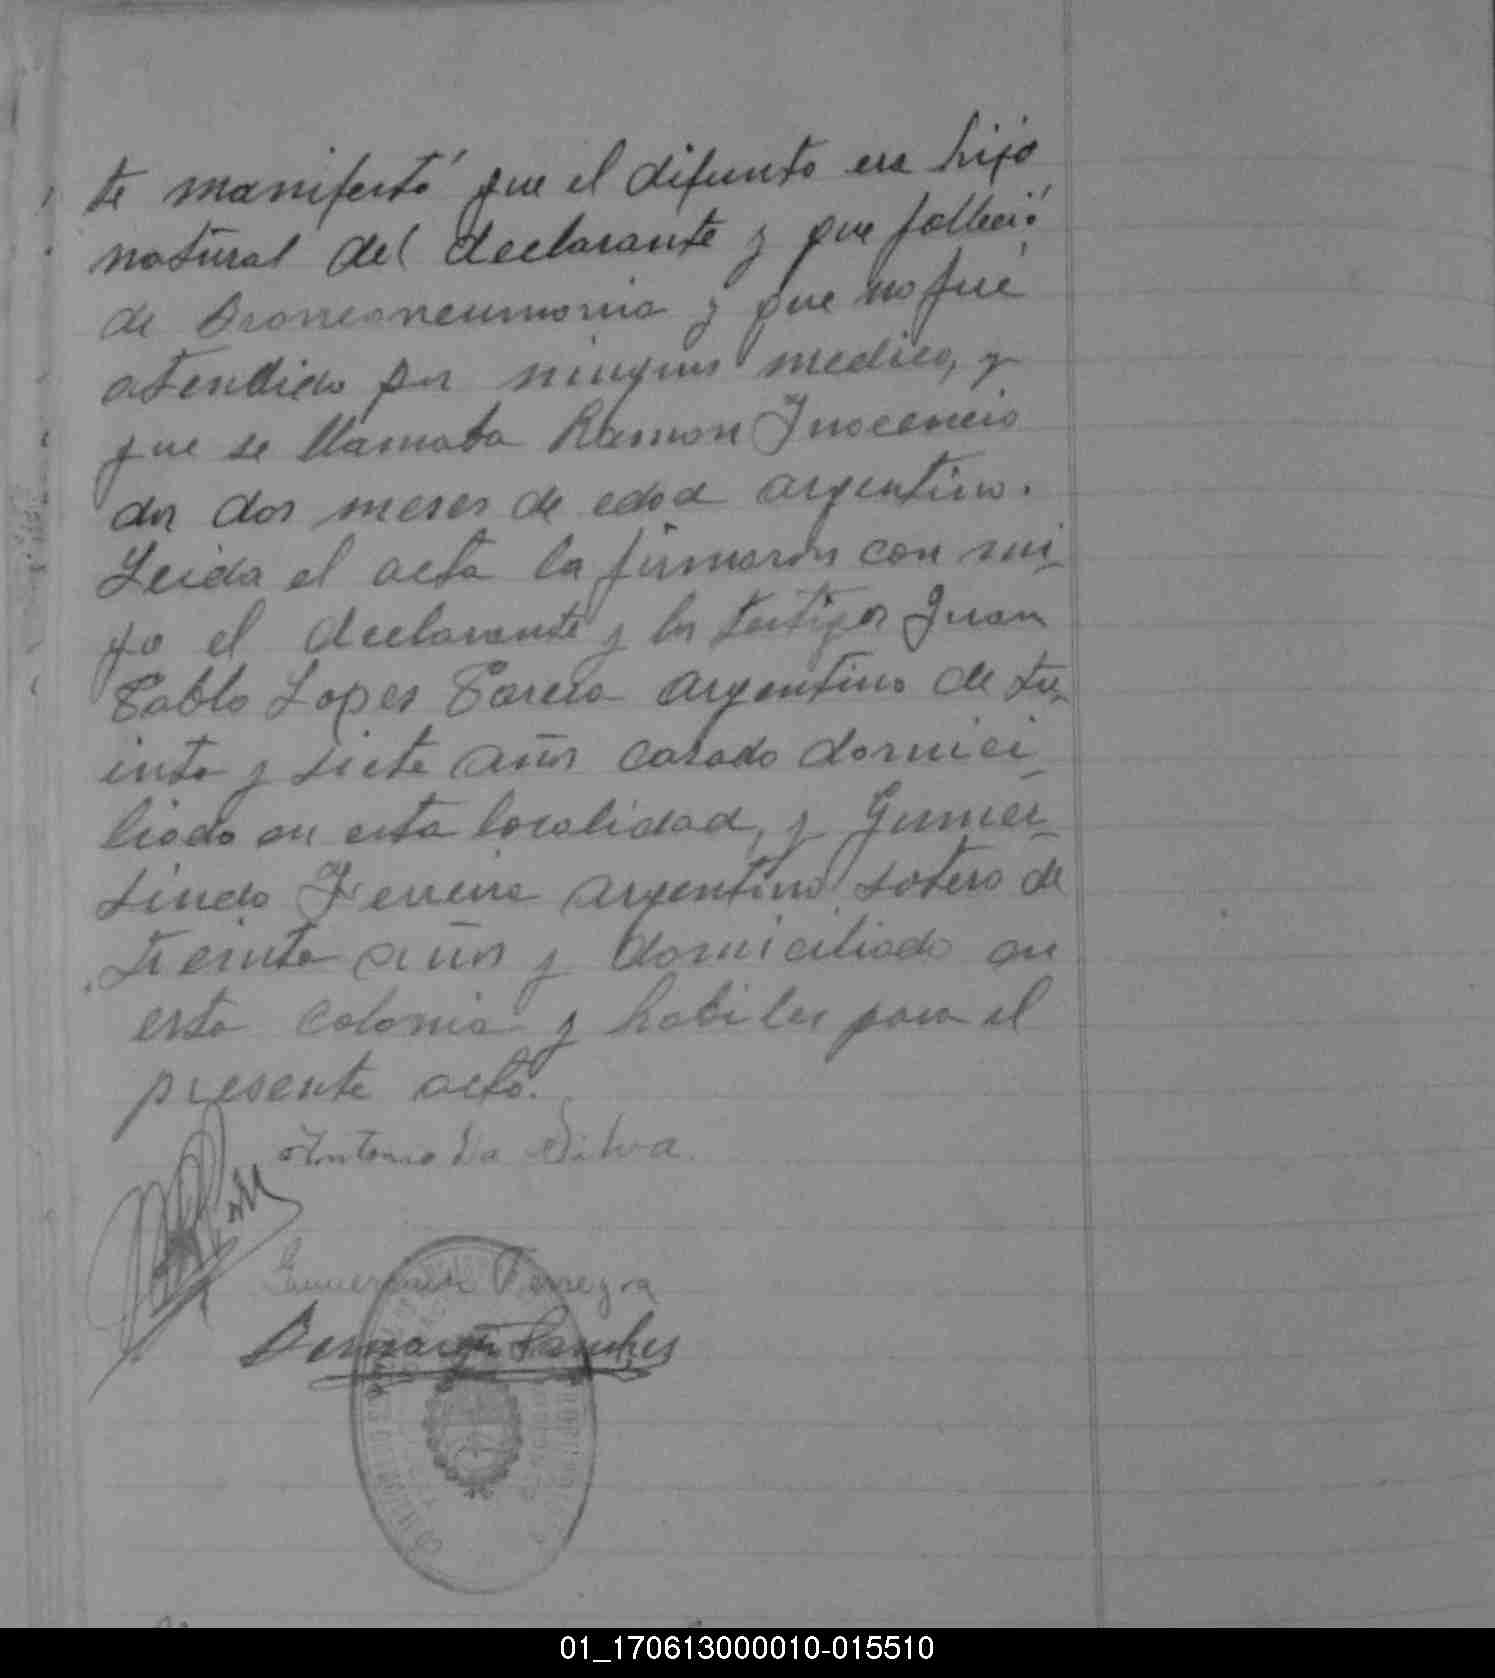 te manifestó que el difunto era hijo
natural del declarante y que falleció
de Bronconeumonia y que no fué
atendido por ningun medico, y
que se llamaba Ramon Inocencio
de dos meses de edad argentino.
Leida el acta la firmaron con mi
go el declarante y los testigos Juan
Pablo Lopes argentino de tre
inta y siete años casado domici
liado en esta localidad, y Gumer
sindo Ferreira argentino sotero de
treinta años y domiciliado en
esta colonia y habiles para el
presente acto.
Antonio Da Silva
Gumersindo Ferreyra
Sanches
01_170613000010-015510